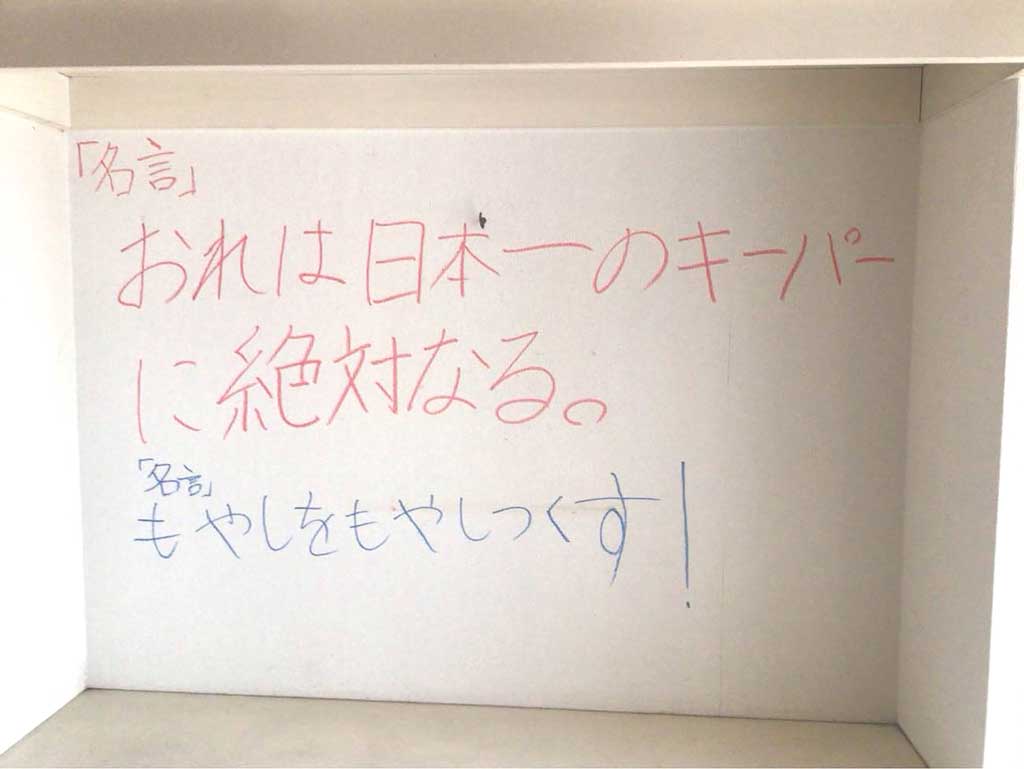 「名言」
おれは日本一のキーパー
に絶対なる。
「名言」
もやしをもやしつくす!